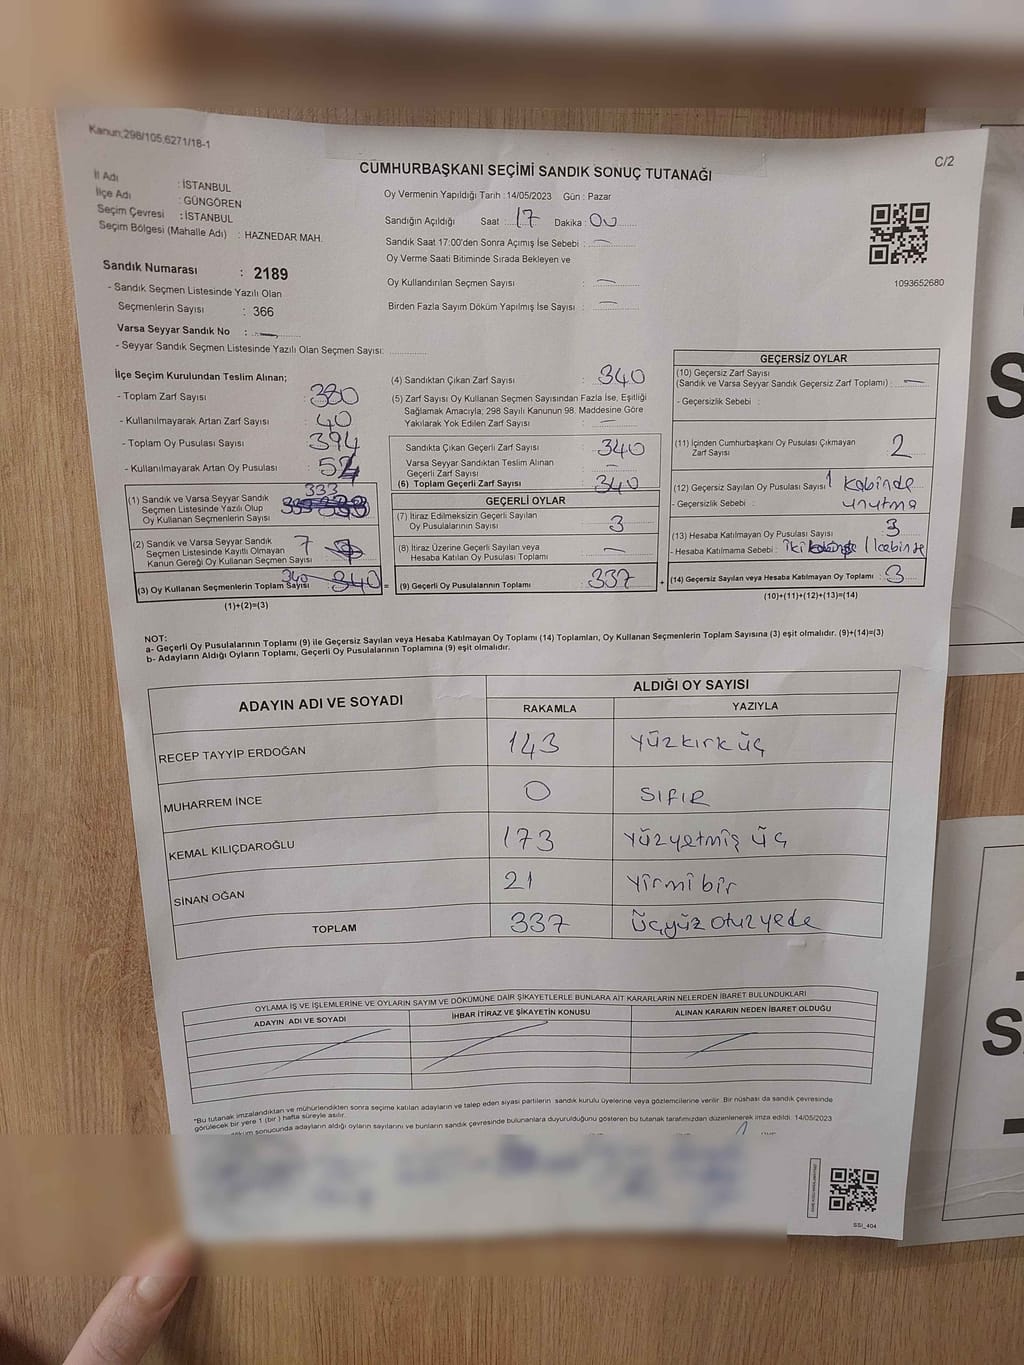 Kanun;298/105,6271/18-1
CUMHURBAŞKANI SEÇİMİ SANDIK SONUÇ TUTANAĞI
C/2
İl Adı : İSTANBUL
İlçe Adı : GÜNGÖREN
Seçim Çevresi : İSTANBUL
Seçim Bölgesi (Mahalle Adı) : HAZNEDAR MAH.
Sandık Numarası : 2189
- Sandık Seçmen Listesinde Yazılı Olan
Seçmenlerin Sayısı : 366
Varsa Seyyar Sandık No :
- Seyyar Sandık Seçmen Listesinde Yazılı Olan Seçmen Sayısı:
Oy Vermenin Yapıldığı Tarih : 14/05/2023 Gün : Pazar
Sandığın Açıldığı Saat : 17 Dakika : 00
Sandık Saat 17:00'den Sonra Açımış İse Sebebi :
Oy Verme Saati Bitiminde Sırada Bekleyen ve
Oy Kullandırılan Seçmen Sayısı :
Birden Fazla Sayım Döküm Yapılmış İse Sayısı :
1093652680
İlçe Seçim Kurulundan Teslim Alınan;
- Toplam Zarf Sayısı : 380
- Kullanılmayarak Artan Zarf Sayısı : 40
- Toplam Oy Pusulası Sayısı : 394
- Kullanılmayarak Artan Oy Pusulası :
333
(1) Sandık ve Varsa Seyyar Sandık
Seçmen Listesinde Yazılı Olup
Oy Kullanan Seçmenlerin Sayısı
(2) Sandık ve Varsa Seyyar Sandık
Seçmen Listesinde Kayıtlı Olmayan 7
Kanun Gereği Oy Kullanan Seçmen Sayısı
(3) Oy Kullanan Seçmenlerin Toplam Sayısı 340 340 =
(1)+(2)=(3)
(4) Sandıktan Çıkan Zarf Sayısı : 340
(5) Zarf Sayısı Oy Kullanan Seçmen Sayısından Fazla İse, Eşitliği
Sağlamak Amacıyla; 298 Sayılı Kanunun 98. Maddesine Göre
Yakılarak Yok Edilen Zarf Sayısı :
Sandıkta Çıkan Geçerli Zarf Sayısı : 340
Varsa Seyyar Sandıktan Teslim Alınan
Geçerli Zarf Sayısı :
(6) Toplam Geçerli Zarf Sayısı : 340
GEÇERLİ OYLAR
(7) İtiraz Edilmeksizin Geçerli Sayılan
Oy Pusulalarının Sayısı : 3
(8) İtiraz Üzerine Geçerli Sayılan veya
Hesaba Katılan Oy Pusulası Toplamı :
(9) Geçerli Oy Pusulalarının Toplamı : 337 +
GEÇERSİZ OYLAR
(10) Geçersiz Zarf Sayısı
(Sandık ve Varsa Seyyar Sandık Geçersiz Zarf Toplamı) :
- Geçersizlik Sebebi :
(11) İçinden Cumhurbaşkanı Oy Pusulası Çıkmayan
Zarf Sayısı : 2
(12) Geçersiz Sayılan Oy Pusulası Sayısı 1 kabinde
- Geçersizlik Sebebi : unutma
(13) Hesaba Katılmayan Oy Pusulası Sayısı : 3
- Hesaba Katılmama Sebebi : iki 1 kabinde
(14) Geçersiz Sayılan veya Hesaba Katılmayan Oy Toplamı : 3
(10)+(11)+(12)+(13)=(14)
NOT:
a- Geçerli Oy Pusulalarının Toplamı (9) ile Geçersiz Sayılan veya Hesaba Katılmayan Oy Toplamı (14) Toplamları, Oy Kullanan Seçmenlerin Toplam Sayısına (3) eşit olmalıdır. (9)+(14)=(3)
b- Adayların Aldığı Oyların Toplamı, Geçerli Oy Pusulalarının Toplamına (9) eşit olmalıdır.
ADAYIN ADI VE SOYADI ALDIĞI OY SAYISI
RAKAMLA YAZIYLA
RECEP TAYYİP ERDOĞAN 143 yüzkırk üç
MUHARREM İNCE 0 SIFIR
KEMAL KILIÇDAROĞLU 173 yüzyetmiş üç
SİNAN OĞAN 21 yirmi bir
TOPLAM 337 üçyüz otuzyede
OYLAMA İŞ VE İŞLEMLERİNE VE OYLARIN SAYIM VE DÖKÜMÜNE DAİR ŞİKAYETLERLE BUNLARA AİT KARARLARIN NELERDEN İBARET BULUNDUKLARI
ADAYIN ADI VE SOYADI İHBAR İTİRAZ VE ŞİKAYETİN KONUSU ALINAN KARARIN NEDEN İBARET OLDUĞU
*Bu tutanak imzalandıktan ve mühürlendikten sonra seçime katılan adayların ve talep eden siyasi partilerin sandık kurulu üyelerine veya gözlemcilerine verilir. Bir nüshası da sandık çevresinde
görülecek bir yere 1 (bir) hafta süreyle asılır.
döküm sonucunda adayların aldığı oyların sayılarını ve bunların sandık çevresinde bulunanlara duyurulduğunu gösteren bu tutanak tarafımızdan düzenlenerek imza edildi. 14/05/2023
SSİ_404
S
S